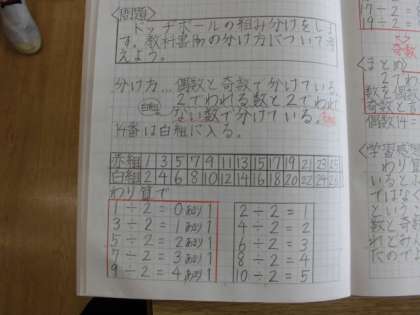 〈問題〉
ドッチボールの組み分けをしま
す。教科書106の分け方について考
えよう。
分け方…偶数と奇数で分けている。
白組 2でわれる数と2でわれ
ない数で分けている。
14番は白組に入る。
赤組 1 3 5 7 9 11 13 15 17 19 21 23 25
白組 2 4 6 8 10 12 14 16 18 20 22 24 26
わり算で
1÷2=0あまり1
3÷2=1あまり1
5÷2=2あまり1
7÷2=3あまり1
9÷2=4あまり1
2÷2=1
4÷2=2
6÷2=3
8÷2=4
10÷2=5
17÷2=8
19÷2=
奇数
〈まとめ〉
2でわ
数を偶数
奇数と
偶数は
〈学習感想
わり算
いると
ではなく
という
数と奇数
れとみ
たのでよ